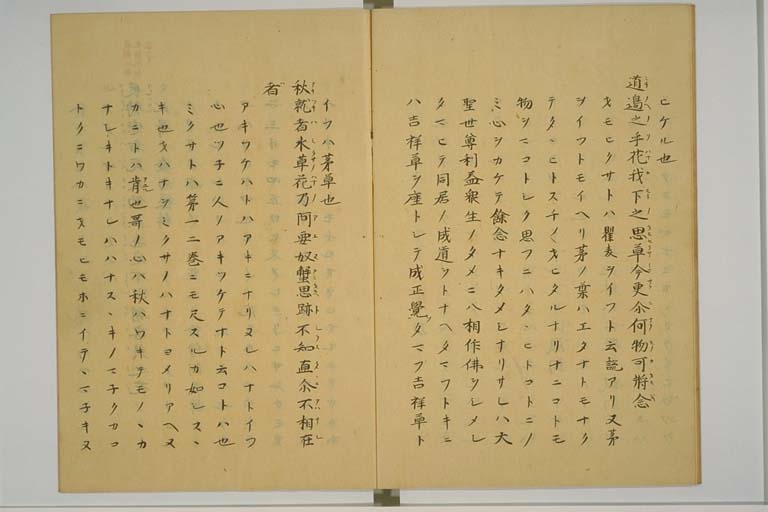 ヒケル也
道邉之乎花我下之思草今更尓何物可將念
ヲモヒクサトハ瞿麦ヲイフト云説アリ又茅
ヲイフトモイヘリ茅ノ葉ハエタナトモナク
テタヽヒトスチノヽヒタルナリナニコトモ
物ヲマコトシク思フニハタヽヒトコトニノ
ミ心ヲカケテ餘念ナキタメシナリサレハ大
聖世尊利益衆生ノタメニ八相作佛ヲシメシ
タマヒテ同居ノ成道ヲトナヘタマフトキニ
ハ吉祥草ヲ座トシテ成正覺タマフ吉祥草ト
イフハ茅草也
秋就者水草花乃阿要奴蟹思跡不知直尓不相在
者
アキツケハトハアキニナリヌレハナトイフ
心也ツチニ人ノアキツケテナト云コトハ也
ミクサトハ第一二巻ニモ尺スルカ如シスヽ
キ也ヲハナヲミクサノハナトヨメリアヘヌ
カニトハ肯也哥ノ心ハ秋ハワキテモノヽカ
ナシキトキナレハハナスヽキノマ子クカコ
トクニワカニヲモヒモホニイテヽマ子キヌ